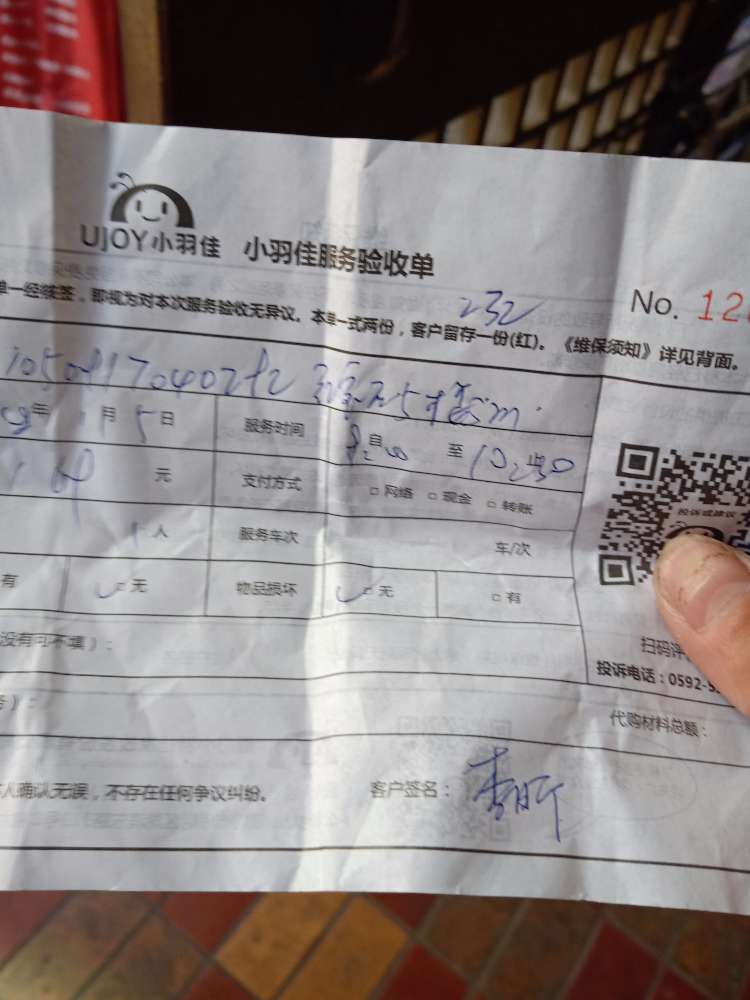 UJOY小羽佳 小羽佳服务验收单
232
No. 12
单一经续签，即视为对本次服务验收无异议。本单一式两份，客户留存一份(红)。《维保须知》详见背面。
年 月 5 日 服务时间 自 至 10:30 止
元 支付方式 □ 网络 □ 现金 □ 转账
人 服务车次 车/次
有 □ 无 物品损坏 □ 无 □ 有
投诉或建议
没有可不填）：
扫码评
投诉电话：0592-5
代购材料总额：
人确认无误，不存在任何争议纠纷。 客户签名：李昕